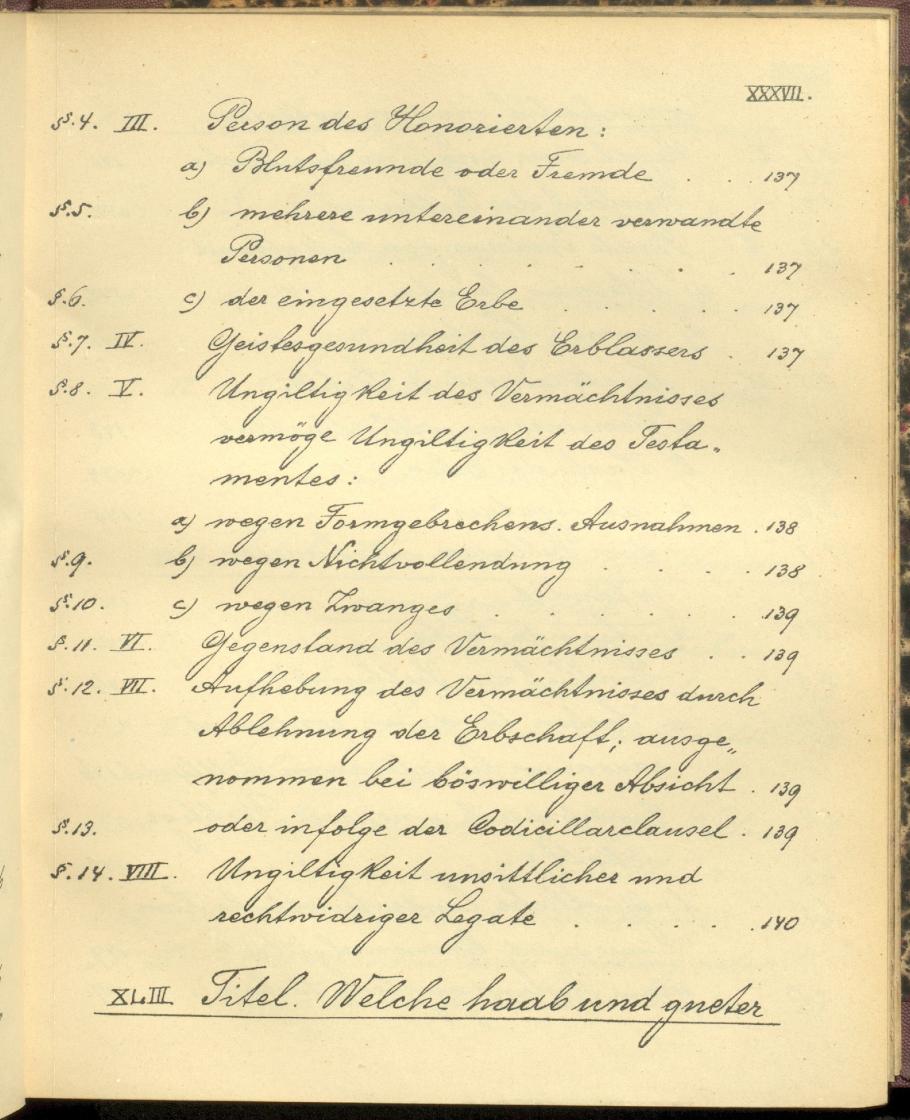 XXXVII.
§.4. III. Person des Honorierten:
a) Blutsfreunde oder Fremde . . . 137
§.5. b) mehrere untereinander verwandte
Personen . . . . . . . . . 137
§.6. c) der eingesetzte Erbe . . . . . . 137
§.7. IV. Geistesgesundheit des Erblassers . 137
§.8. V. Ungiltigkeit des Vermächtnisses
vermöge Ungiltigkeit des Testa„
mentes:
a) wegen Formgebrechens. Ausnahmen . 138
§.9. b) wegen Nichtvollendung . . . . . 138
§.10. c) wegen Zwanges . . . . . . . 139
§.11. VI. Gegenstand des Vermächtnisses . . 139
§.12. VII. Aufhebung des Vermächtnisses durch
Ablehnung der Erbschaft; ausge„
nommen bei böswilliger Absicht . 139
§.13. oder infolge der Codicillarclausel . 139
§.14. VIII. Ungiltigkeit unsittlicher und
rechtwidriger Legate . . . . . 140
XLIII Titel. Welche haab und gueter